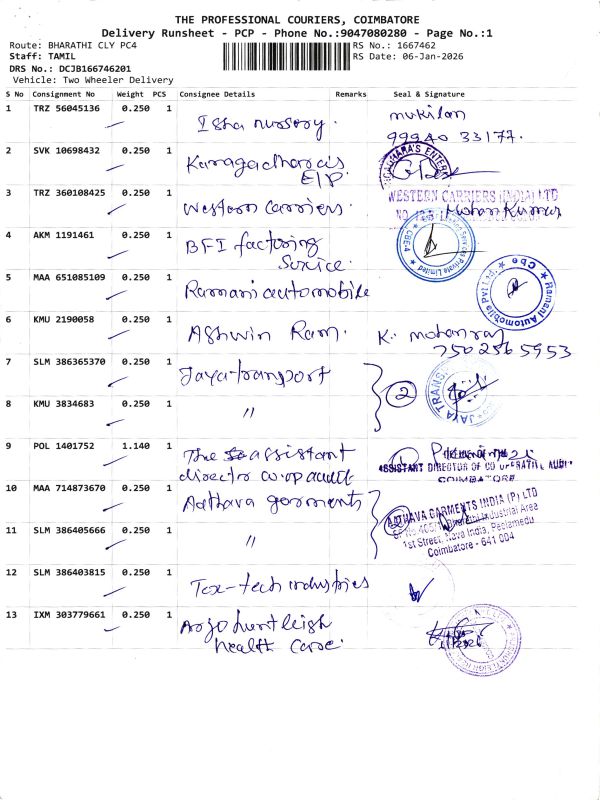 THE PROFESSIONAL COURIERS, COIMBATORE
Delivery Runsheet - PCP - Phone No.:9047080280 - Page No.:1
Route: BHARATHI CLY PC4
RS No.: 1667462
Staff: TAMIL
RS Date: 06-Jan-2026
DRS No.: DCJB166746201
Vehicle: Two Wheeler Delivery
S No Consignment No Weight PCS Consignee Details Remarks Seal & Signature
1 TRZ 56045136 0.250 1 Isha nursery. mukilan
99940 33177.
2 SVK 10698432 0.250 1
E/P.
3 TRZ 360108425 0.250 1 Western carriers. WESTERN CARRIERS (INDIA) LTD
Mohan Kumar
4 AKM 1191461 0.250 1 BFI factoring
Service.
Private Limited
CBE-4
5 MAA 651085109 0.250 1 Ramani automobile
Ramani Automobile Pvt Ltd., ★ Cbe ★
6 KMU 2190058 0.250 1 Ashwin Ram. K. mohanraj
7502565953
7 SLM 386365370 0.250 1 Jaya transport 2
JAYA TRANS
8 KMU 3834683 0.250 1 〃
9 POL 1401752 1.140 1 The assistant
director co.op audit
ASSISTANT DIRECTOR OF CO OPERATIVE AUDIT
COIMBATORE
10 MAA 714873670 0.250 1 Aathava garments
AATHAVA GARMENTS INDIA (P) LTD
Industrial Area
1st Street, Nava India, Peelamedu
Coimbatore - 641 004
11 SLM 386405666 0.250 1 〃
12 SLM 386403815 0.250 1 Tex-tech industries
13 IXM 303779661 0.250 1 Arjo huntleigh
health care.